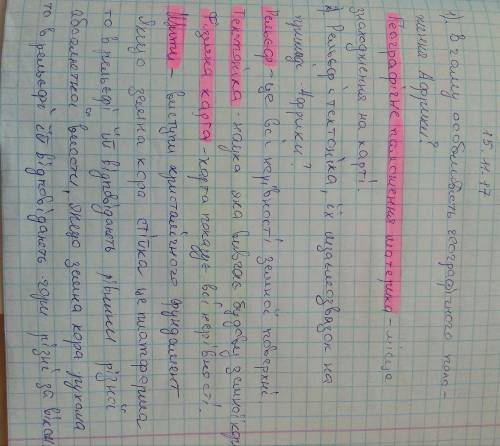 15.11.17
1). В чому особливість географічного поло-
ження Африки?
Географічне положення материка - місце
знаходження на карті.
2) Рельєф і тектоніка, їх взаємозвязок на
прикладі Африки?
Рельєф - це всі нерівності земної поверхні.
Тектоніка - наука яка вивчає будову земної кори
Фізична карта - карта показує всі нерівності.
Щити - виступи кристалічного фундамент
Якщо земна кора стійка це платформа
то в рельєфі їй відповідають рівнини різної
абсолютної висоти, якщо земна кора рухома
то в рельєфі їй відповідають гори різні за віком